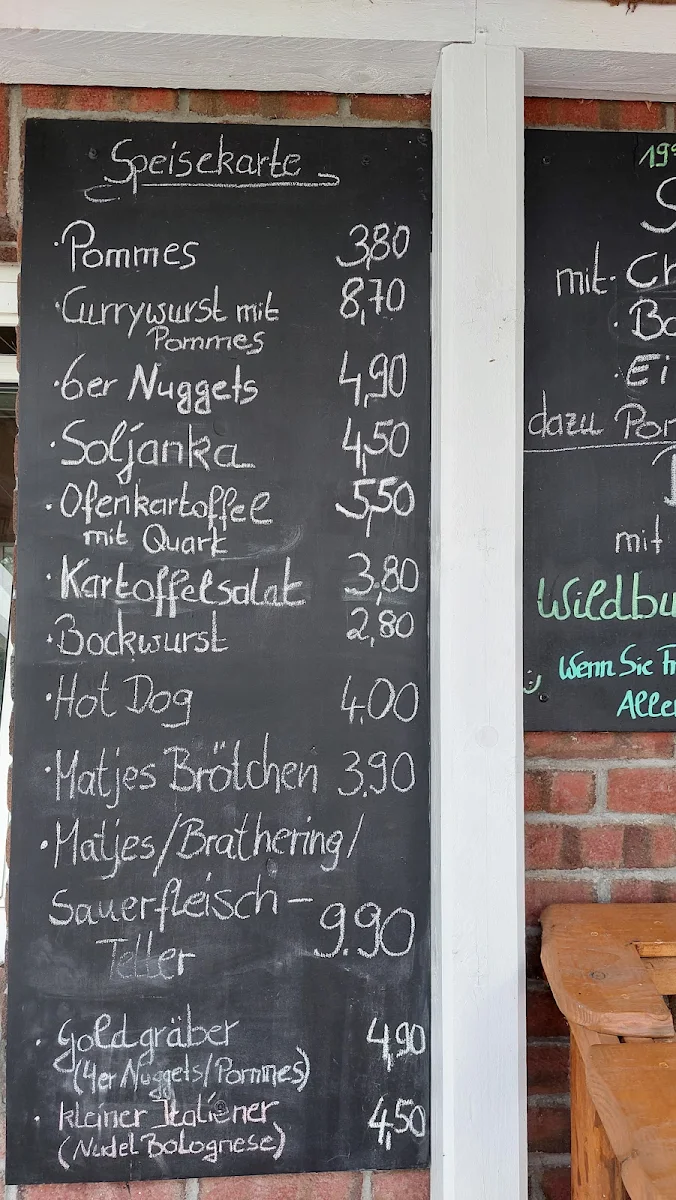 Speisekarte
· Pommes 3,80
· Currywurst mit 8,70
Pommes
· 6er Nuggets 4,90
· Soljanka 4,50
· Ofenkartoffel 5,50
mit Quark
· Kartoffelsalat 3,80
· Bockwurst 2,80
· Hot Dog 4.00
· Matjes Brötchen 3.90
· Matjes/Brathering/
Sauerfleisch- 9.90
Teller
· Goldgräber 4,90
(4er Nuggets/Pommes)
· kleiner Italiener 4,50
(Nudel Bolognese)
mit
dazu
mit
Wenn Sie